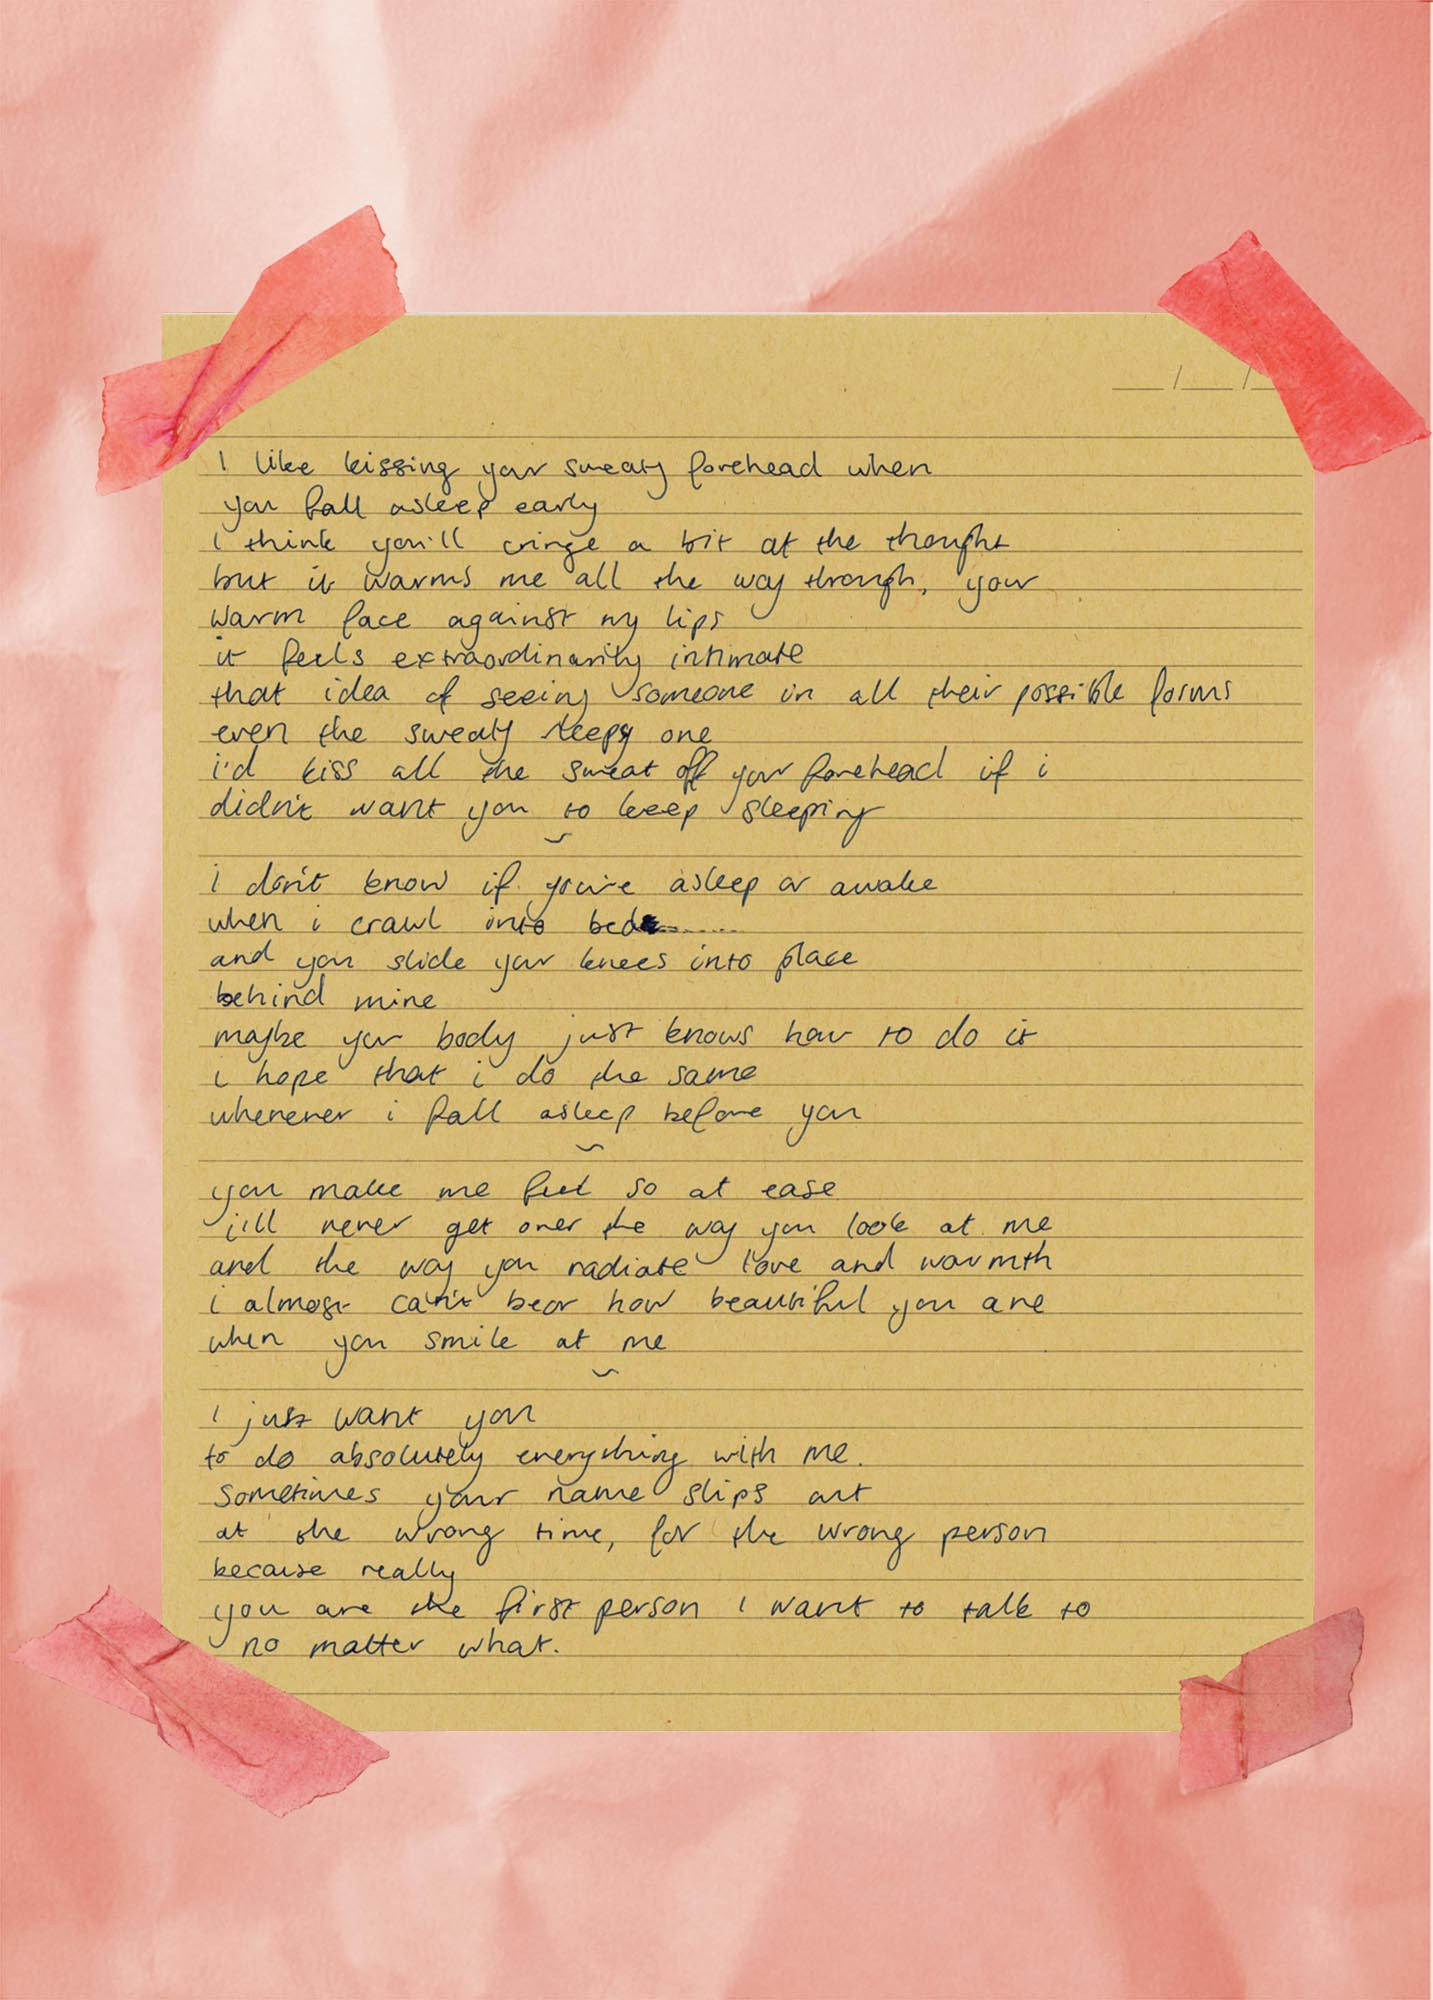 I like kissing your sweaty forehead when
you fall asleep early
i think you'll cringe a bit at the thought
but it warms me all the way through, your
warm face against my lips
it feels extraordinarily intimate
that idea of seeing someone in all their possible forms
even the sweaty sleepy one
i'd kiss all the sweat off your forehead if i
didn't want you to keep sleeping
~
i don't know if you're asleep or awake
when i crawl into bed
and you slide your knees into place
behind mine
maybe your body just knows how to do it
i hope that i do the same
whenever i fall asleep before you
~
you make me feel so at ease
i'll never get over the way you look at me
and the way you radiate love and warmth
i almost can't bear how beautiful you are
when you smile at me
~
I just want you
to do absolutely everything with me.
Sometimes your name slips out
at the wrong time, for the wrong person
because really
you are the first person I want to talk to
no matter what.